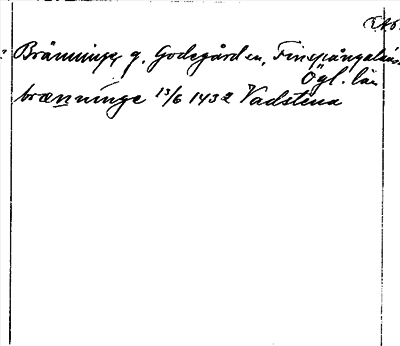 Bränninge g. Godegård sn, Finspångaläns
Ögl. län
brænninge 13/6 1432 Vadstena